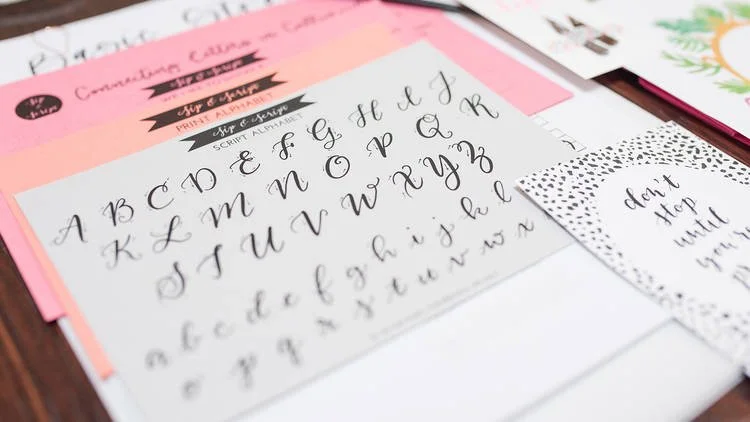 Basic
Connecting Letters in
Sip & Script
Sip & Script
Sip & Script
PRINT ALPHABET
Sip & Script
SCRIPT ALPHABET
A B C D E F G H I J
K L M N O P Q R
S T U V W X Y Z
a b c d e f g h i j k l
o p q r s t u v w x
don't
stop
until
you're